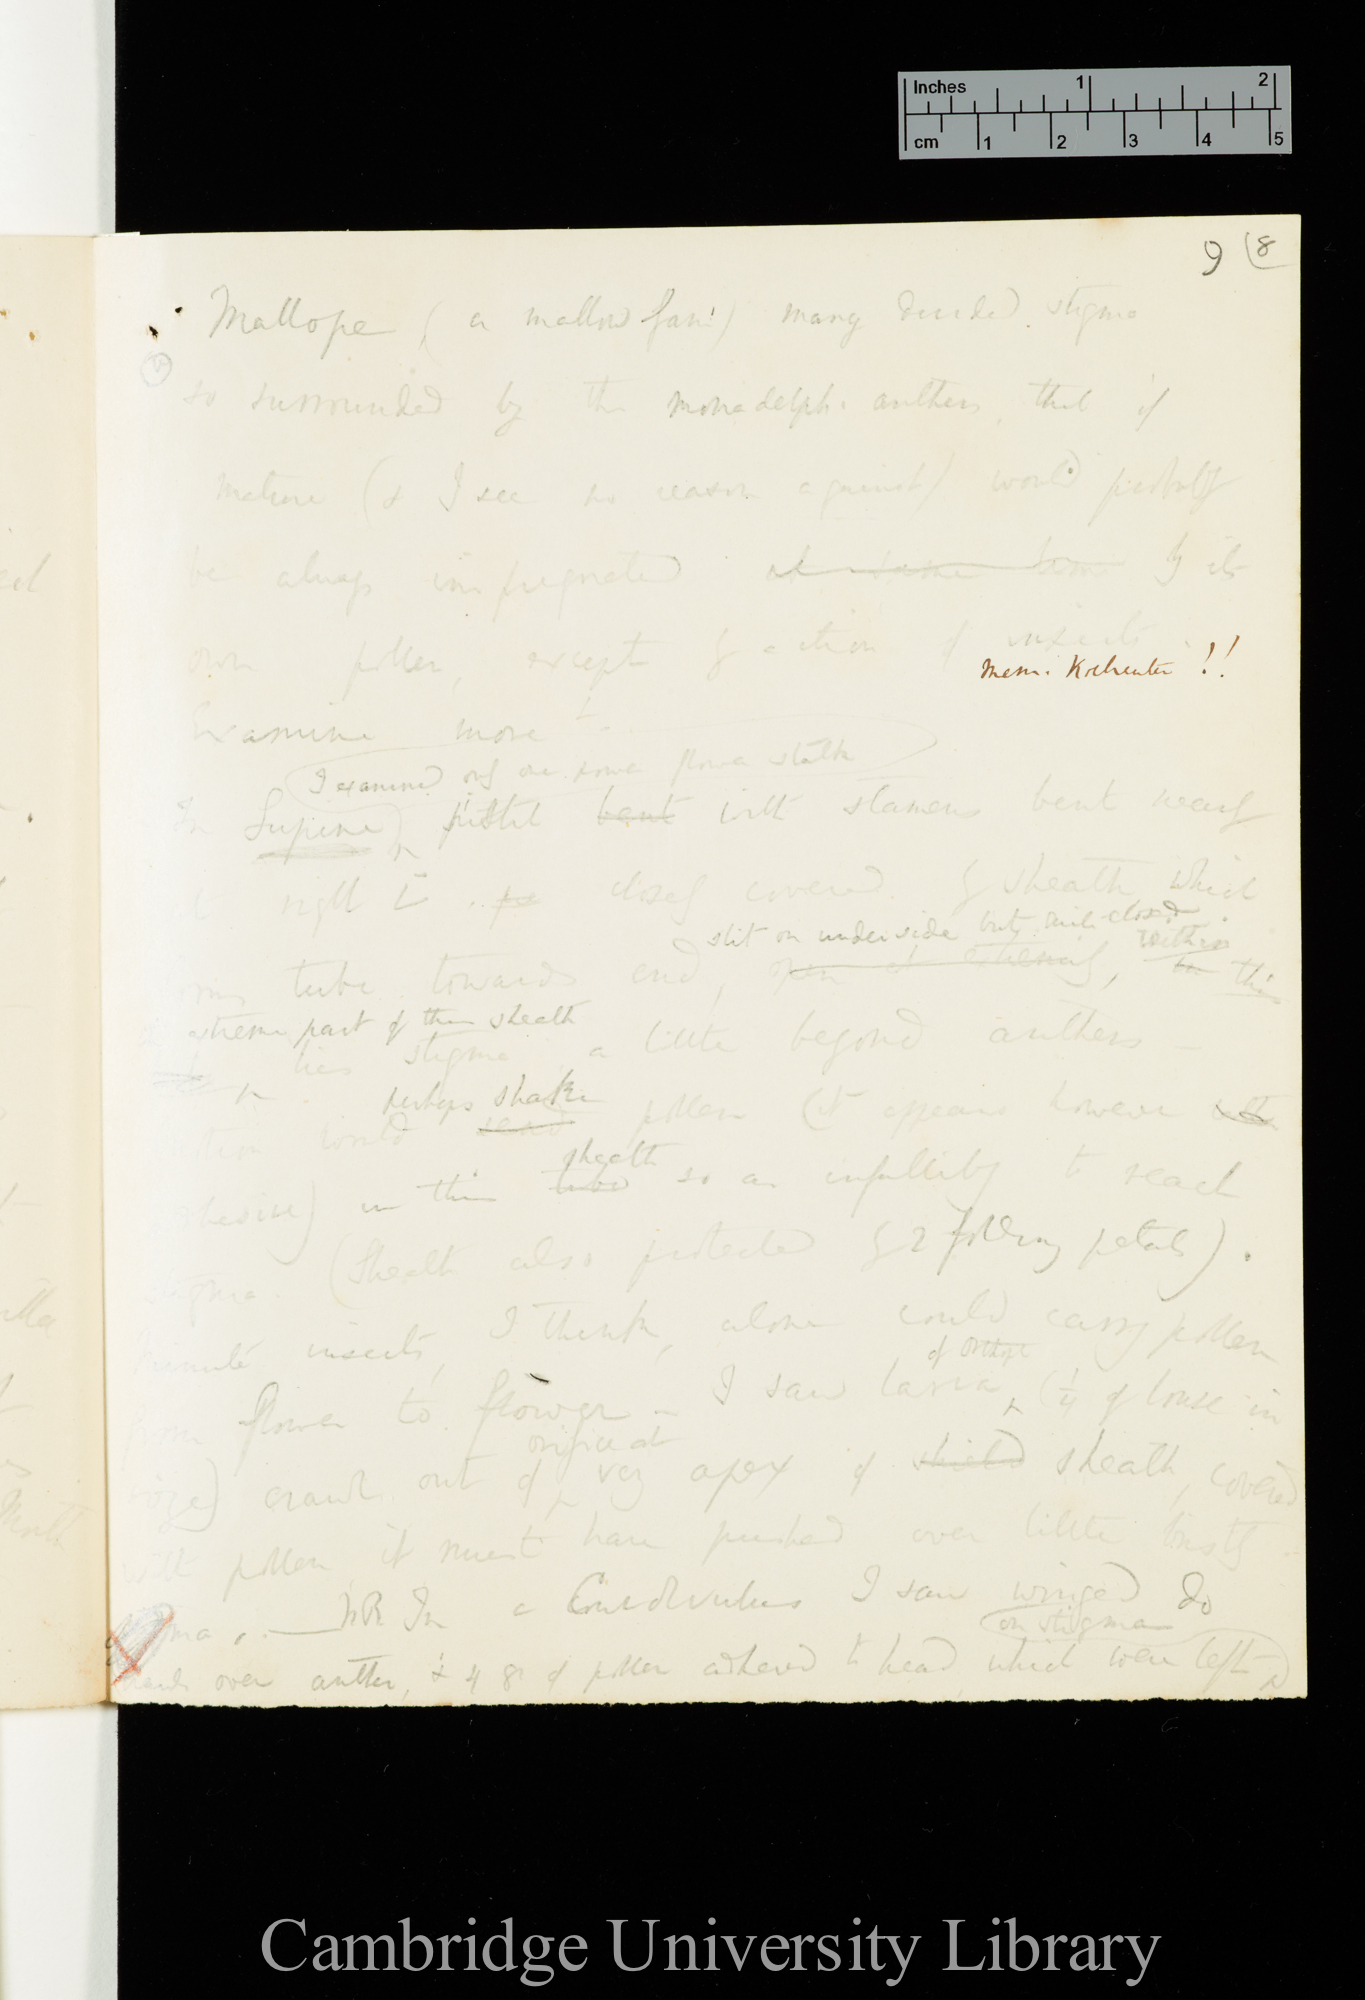 Inches 1 2
cm 1 2 3 4 5
9 (8
Mallope (a mallow fam:) many divided stigma
so surrounded by the monadelph: anthers, that if
mature (& I see no reason against) would probably
be always impregnated at same time by its
own pollen, except by action of insects.
Mem: Kolreuter !!
Examine more
I examined only one flower stalk
In Lupine, pistil bent with stamens bent nearly
at right L, closely covered by sheath which
slit on underside but closed
forms tube towards end, open at extremity, within in this
extreme part of the sheath
lies stigma, a little beyond anthers —
perhaps shake
motion would send pollen (it appears however
sheath
adhesive) in this tube so as infallibly to reach
stigma. (Sheath also protected by 2 folding petals).
Minute insects, I think, alone could carry pollen
of Orthopt
from flower to flower — I saw larva (¼ of louse in
orifice at
size) crawl out of very apex of shield sheath, covered
with pollen, it must have pushed over little bristly
stigma. — NB In a Convolvulus I saw winged do
on stigma
crawl over anther, & 4 gr of pollen adhered to head, which were left
Cambridge University Library